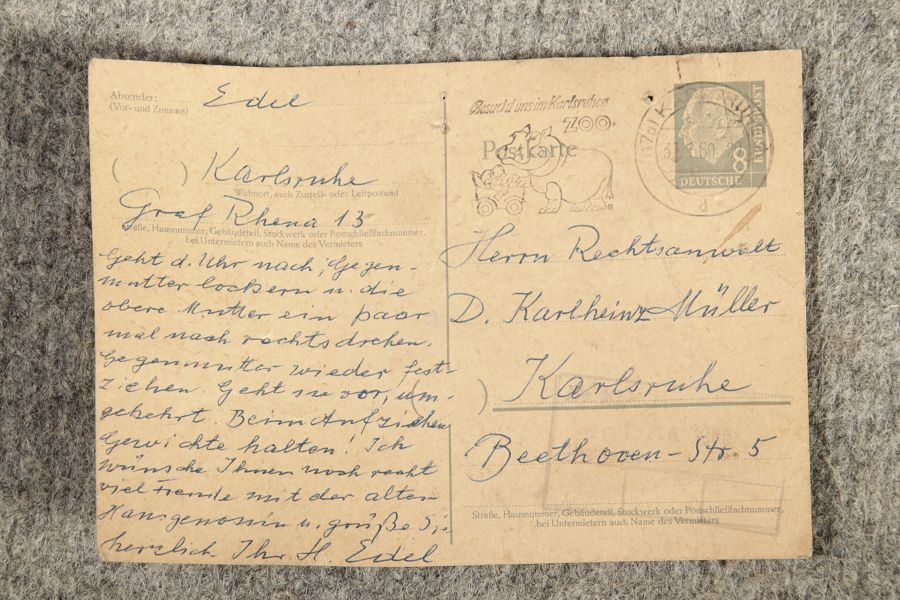 Absender:
(Vor- und Zuname)
Edel
Karlsruhe
Wohnort, auch Zustell- oder Leitpostamt
Graf Rhena 13
Straße, Hausnummer, Gebäudeteil, Stockwerk oder Postschließfachnummer,
bei Untermietern auch Name des Vermieters
Geht d. Uhr nach, Gegen-
mutter lockern u. die
obere Mutter ein paar
mal nach rechts drehen.
Gegenmutter wieder fest-
ziehen. Geht sie vor, um-
gekehrt. Beim Aufziehen
Gewichte halten! Ich
wünsche Ihnen noch recht
viel Freude mit der alten
Hausgenossin u. grüße Sie
herzlich Ihr H. Edel
Besucht uns im Karlsruher
ZOO
Postkarte
8
DEUTSCHE
BUNDESPOST
Herrn Rechtsanwalt
D. Karlheinz Müller
Karlsruhe
Beethoven-Str. 5
Straße, Hausnummer, Gebäudeteil, Stockwerk oder Postschließfachnummer,
bei Untermietern auch Name des Vermieters